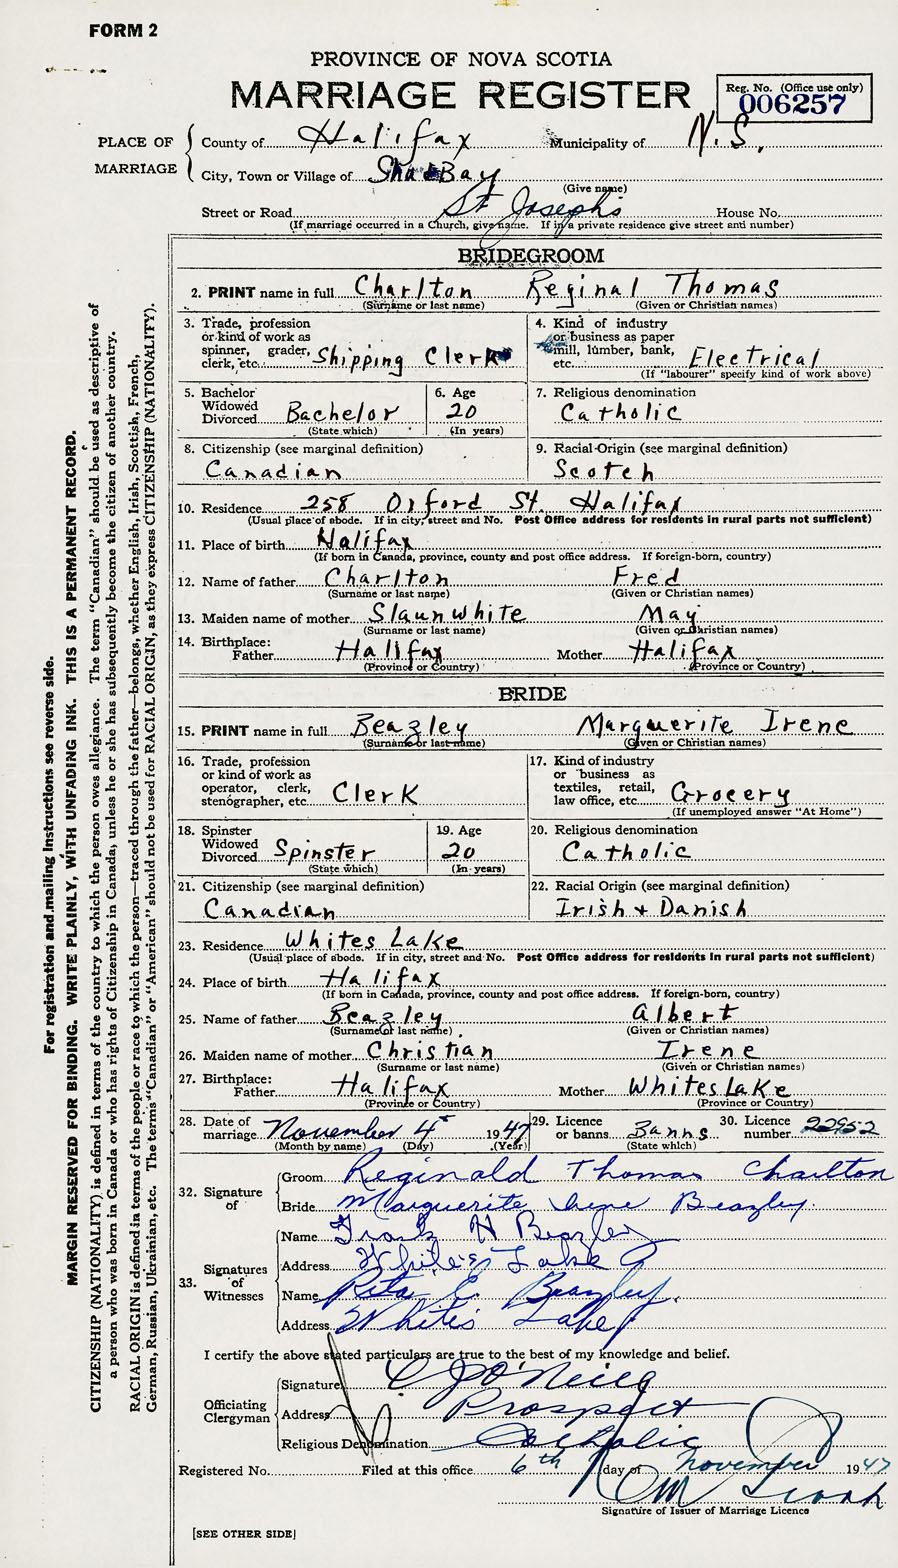 FORM 2
PROVINCE OF NOVA SCOTIA
MARRIAGE REGISTER
Reg. No. (Office use only)
006257
PLACE OF MARRIAGE
County of Halifax Municipality of N.S.
City, Town or Village of Shad Bay
(Give name)
Street or Road St Joseph's House No.
(If marriage occurred in a Church, give name. If in a private residence give street and number)
BRIDEGROOM
2. PRINT name in full Charlton Reginal Thomas
(Surname or last name) (Given or Christian names)
3. Trade, profession or kind of work as spinner, grader, clerk, etc. Shipping Clerk
4. Kind of industry or business as paper mill, lumber, bank, etc. Electrical
(If "labourer" specify kind of work above)
5. Bachelor Widowed Divorced Bachelor
(State which)
6. Age 20
(In years)
7. Religious denomination
Catholic
8. Citizenship (see marginal definition)
Canadian
9. Racial Origin (see marginal definition)
Scotch
10. Residence 258 Oxford St. Halifax
(Usual place of abode. If in city, street and No. Post Office address for residents in rural parts not sufficient)
11. Place of birth Halifax
(If born in Canada, province, county and post office address. If foreign-born, country)
12. Name of father Charlton Fred
(Surname or last name) (Given or Christian names)
13. Maiden name of mother Slaunwhite May
(Surname or last name) (Given or Christian names)
14. Birthplace:
Father Halifax Mother Halifax
(Province or Country) (Province or Country)
BRIDE
15. PRINT name in full Beazley Marguerite Irene
(Surname or last name) (Given or Christian names)
16. Trade, profession or kind of work as operator, clerk, stenographer, etc. Clerk
17. Kind of industry or business as textiles, retail, law office, etc. Grocery
(If unemployed answer "At Home")
18. Spinster Widowed Divorced Spinster
(State which)
19. Age 20
(In years)
20. Religious denomination
Catholic
21. Citizenship (see marginal definition)
Canadian
22. Racial Origin (see marginal definition)
Irish + Danish
23. Residence Whites Lake
(Usual place of abode. If in city, street and No. Post Office address for residents in rural parts not sufficient)
24. Place of birth Halifax
(If born in Canada, province, county and post office address. If foreign-born, country)
25. Name of father Beazley Albert
(Surname or last name) (Given or Christian names)
26. Maiden name of mother Christian Irene
(Surname or last name) (Given or Christian names)
27. Birthplace:
Father Halifax Mother Whites Lake
(Province or Country) (Province or Country)
28. Date of marriage November 4th 1947
(Month by name) (Day) (Year)
29. Licence or banns Banns
(State which)
30. Licence number 22952
32. Signature of
Groom Reginald Thomas Charlton
Bride Marguerite Irene Beazley.
33. Signatures of Witnesses
Name Frank H Beazley
Address Whites Lake
Name Rita C. Beazley.
Address Whites Lake
I certify the above stated particulars are true to the best of my knowledge and belief.
Officiating Clergyman
Signature C J O'Neill
Address Prospect
Religious Denomination Catholic
Registered No. Filed at this office 6th day of November 1947
Signature of Issuer of Marriage Licence
[SEE OTHER SIDE]
For registration and mailing instructions see reverse side.
MARGIN RESERVED FOR BINDING. WRITE PLAINLY, WITH UNFADING INK. THIS IS A PERMANENT RECORD.
CITIZENSHIP (NATIONALITY) is defined in terms of the country to which the person owes allegiance. The term "Canadian" should be used as descriptive of
a person who was born in Canada or who has rights of Citizenship in Canada, unless he or she has subsequently become the citizen of another country.
RACIAL ORIGIN is defined in terms of the people or race to which the person—traced through the father—belongs, whether English, Irish, Scottish, French,
German, Russian, Ukrainian, etc. The terms "Canadian" or "American" should not be used for RACIAL ORIGIN, as they express CITIZENSHIP (NATIONALITY).